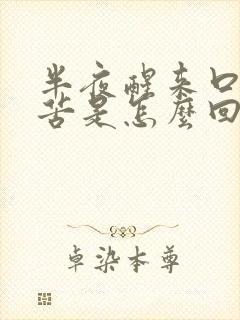 半夜醒来口
苦是怎麼回
卓染本尊